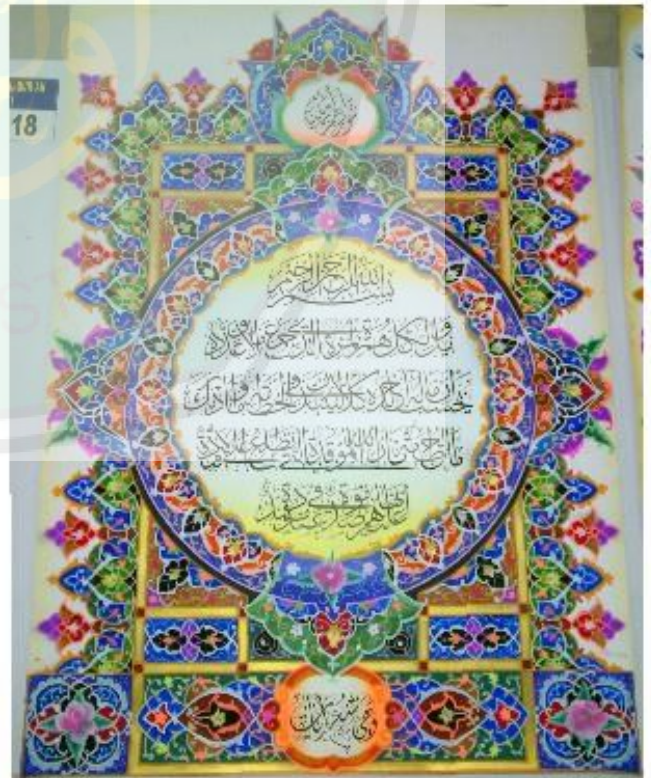 18
بسم الله الرحمن الرحيم
ويل لكل همزة لمزة الذي جمع مالا وعدده
يحسب أن ماله أخلده كلا لينبذن في الحطمة وما أدراك
ما الحطمة نار الله الموقدة التي تطلع على الأفئدة
إنها عليهم مؤصدة في عمد ممددة